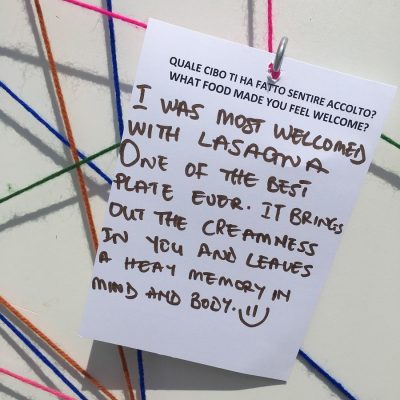 QUALE CIBO TI HA FATTO SENTIRE ACCOLTO?
WHAT FOOD MADE YOU FEEL WELCOME?
I WAS MOST WELLCOMED
WITH LASAGNA
ONE OF THE BEST
PLATE EVER. IT BRINGS
OUT THE CREAMNESS
IN YOU AND LEAVES
A HEAY MEMORY IN
MIND AND BODY.